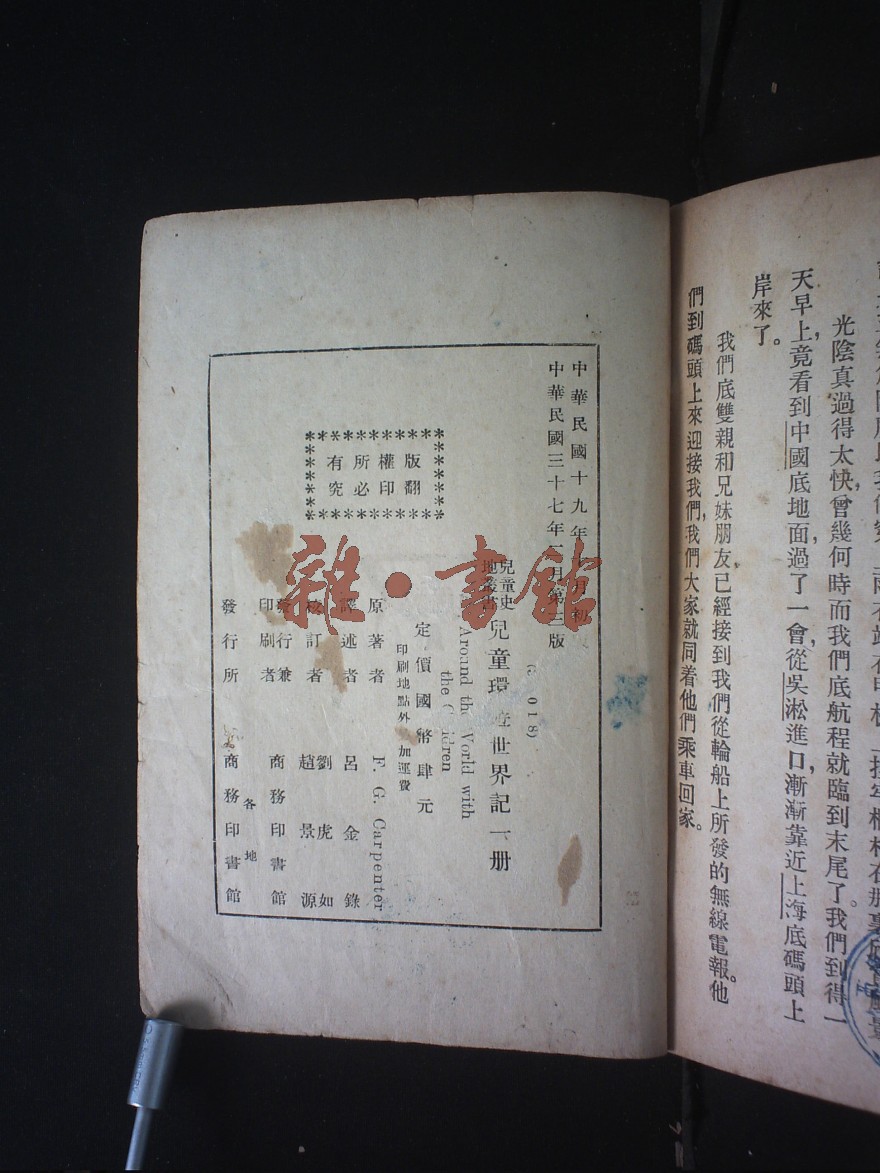 光陰真過得太快，曾幾何時而我們底航程就臨到末尾了。我們到得一
天早上，竟看到中國底地面，過了一會，從吳淞進口，漸漸靠近上海底碼頭上
岸來了。
我們底雙親和兄妹朋友已經接到我們從輪船上所發的無線電報。他
們到碼頭上來迎接我們，我們大家就同着他們乘車回家。
中華民國十九年 月初
中華民國三十七年 月第三版
018)
兒童史地叢書
兒童環 世界記 一册
Around the World with
the Children
定價國幣肆元
印刷地點外 加運費
原著者 F. G. Carpenter
譯述者 呂金錄
校訂者 劉虎如 趙景源
發行兼印刷者 商務印書館
發行所 各地 商務印書館
版權所有
翻印必究
雜·書館